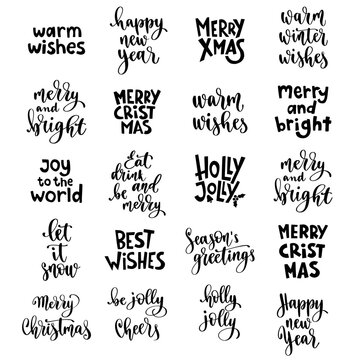 warm
wishes
happy
new
year
MERRY
XMAS
warm
winter
wishes
merry
and
bright
MERRY
CRIST
MAS
warm
wishes
merry
and
bright
joy
to the
world
Eat
drink
be and
merry
HOLLY
JOLLY
merry
and
bright
let
it
snow
BEST
WISHES
Season's
greetings
MERRY
CRIST
MAS
Merry
Christmas
be jolly
Cheers
holly
jolly
Happy
new
Year